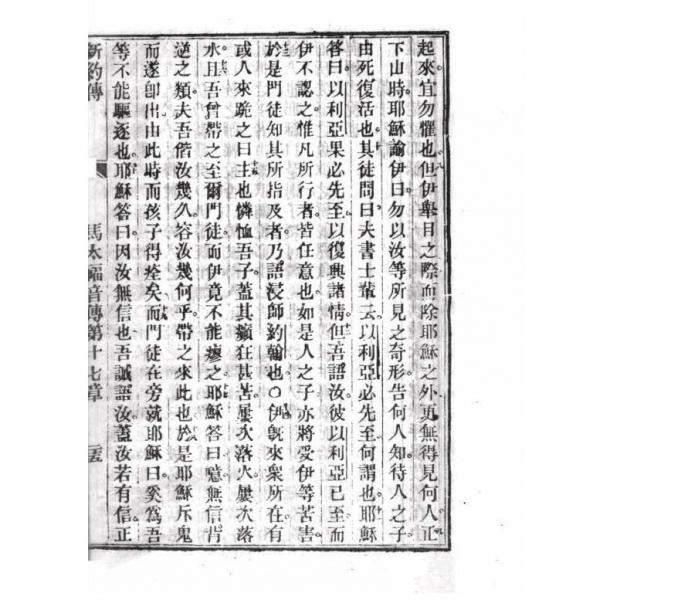 起來宜勿懼也但伊舉目之際而除耶穌之外更無得見何人正
下山時耶穌諭伊曰勿以汝等所見之奇形告何人知待人之子
由死復活也其徒問曰夫書士輩云以利亞必先至何謂也耶穌
答曰以利亞果必先至以復興諸情但吾語汝彼以利亞已至而
伊不認之惟凡所行者皆任意也如是人之子亦將受伊等苦害
於是門徒知其所指及者乃語浸師約翰也○伊旣來衆所在有
或人來跪之曰主也憐恤吾子蓋其癲狂甚苦屢次落火屢次落
水且吾曾帶之至爾門徒而伊竟不能瘳之耶穌答曰噫無信背
逆之類夫吾偕汝幾久容汝幾何乎帶之來此也於是耶穌斥鬼
而遂卽出由此時而孩子得痊矣而門徒在旁就耶穌曰奚爲吾
等不能驅逐也耶穌答曰因汝無信也吾誠語汝蓋汝若有信正
新約傳 馬太福音傳第十七章